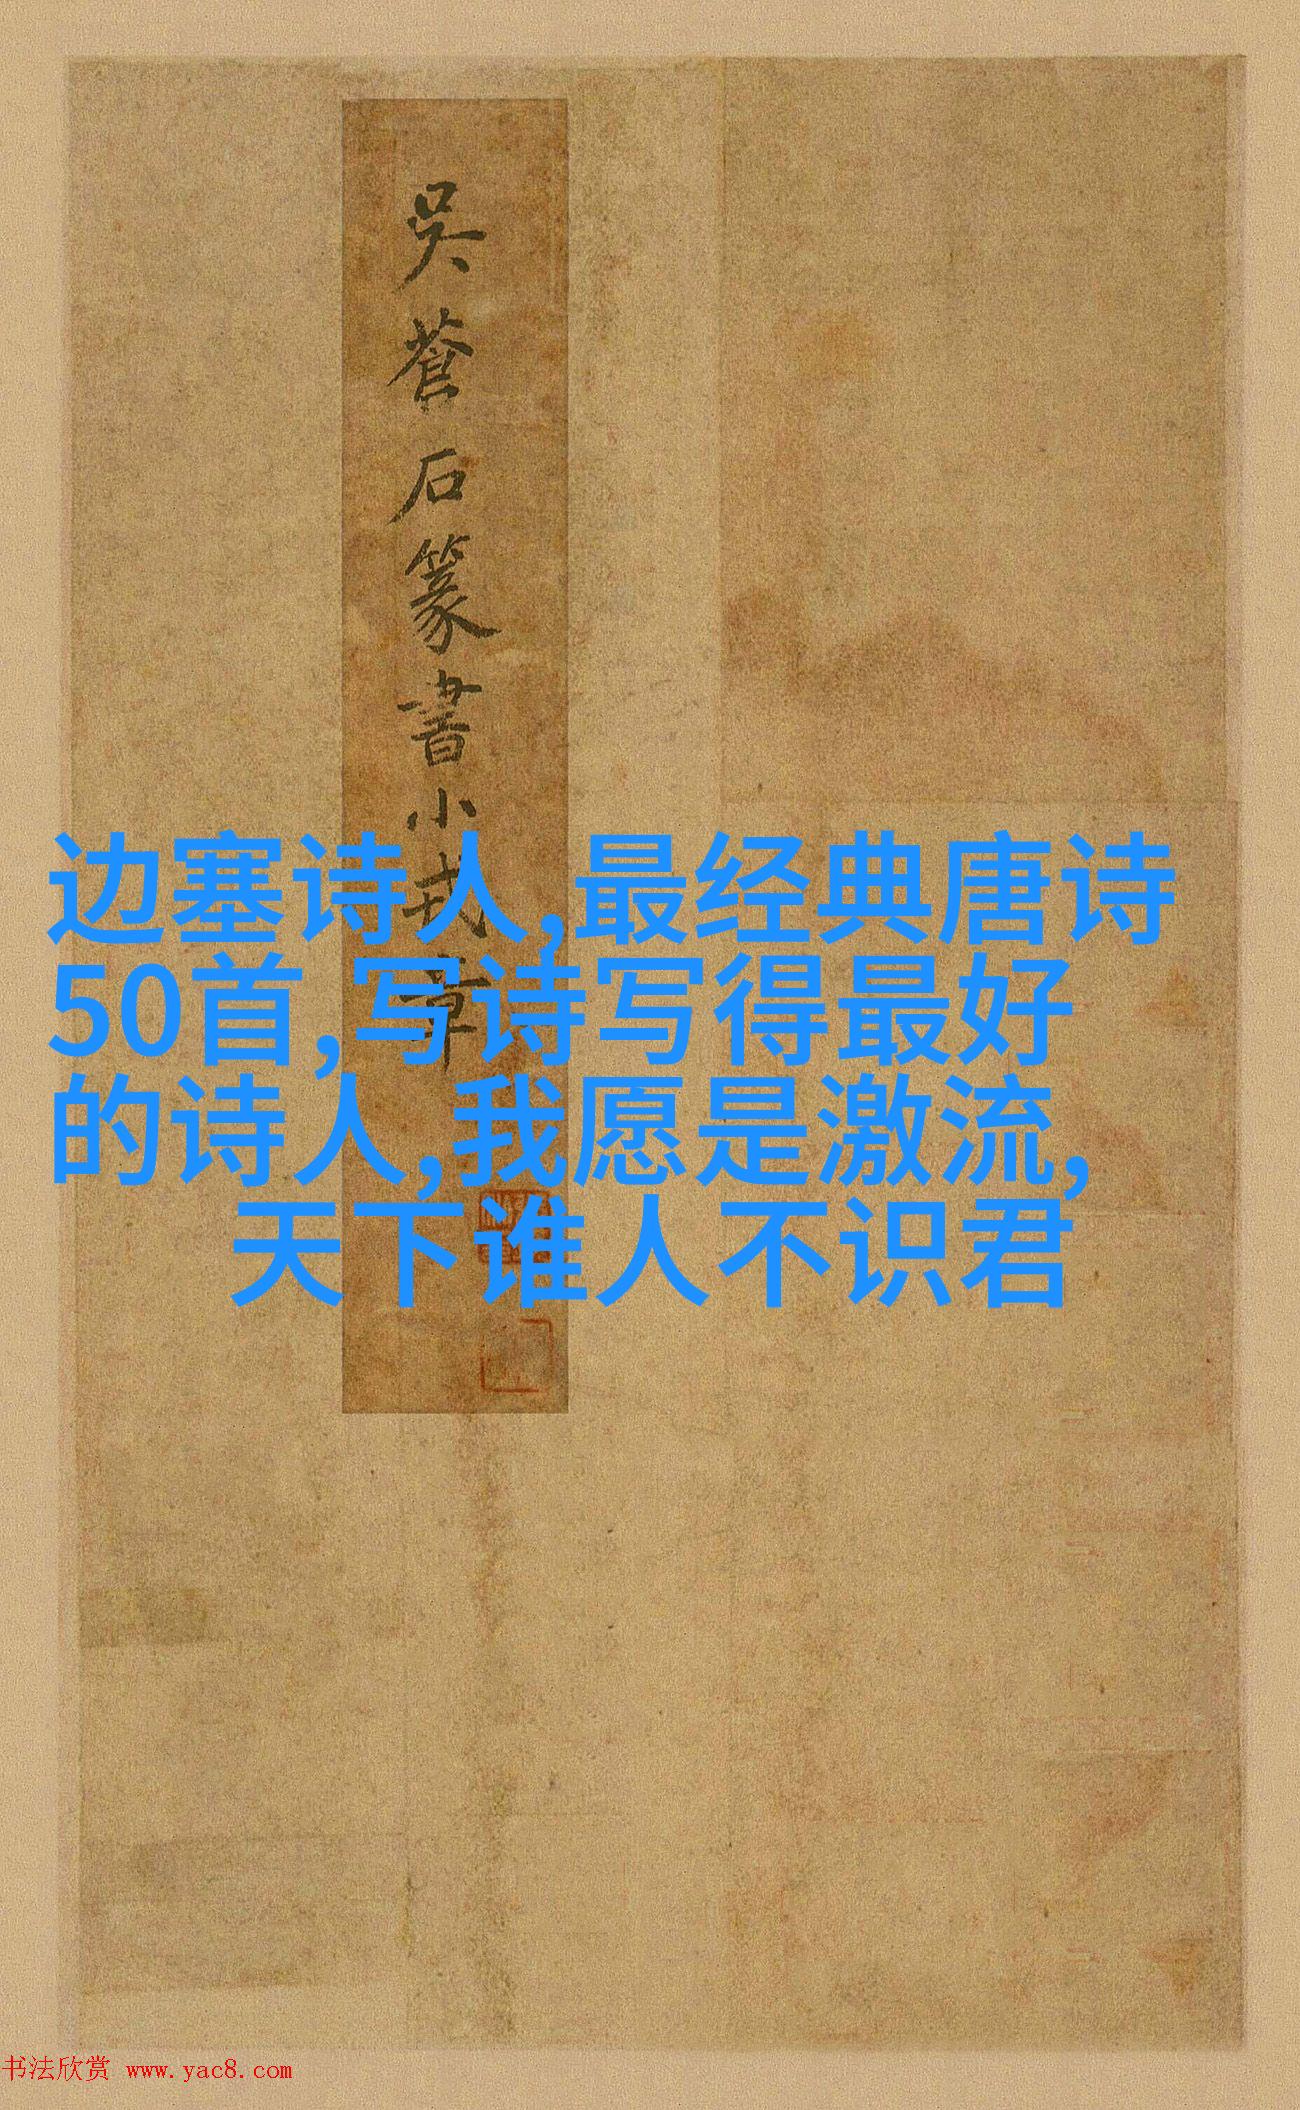 吳蒼石篆書小戎章
边塞诗人,最经典唐诗
50首,写诗写得最好
的诗人,我愿是激流,
天下谁人不识君
书法欣赏 www.yac8.com